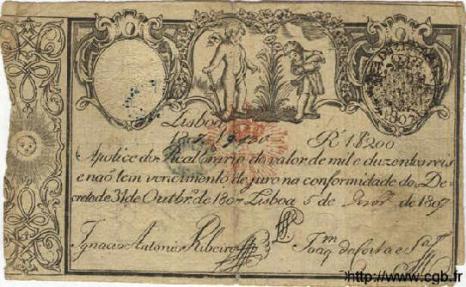 1807
Lisboa
R 1$200
Apolice do Real Erario do valor de mil e duzentos reis
e não tem vencimento de juro na conformidade do De-
creto de 31 de Outbrº. de 1807 Lisboa 5 de de 1807
Ignacio Antonio Ribeiro
http://www.cgb.fr